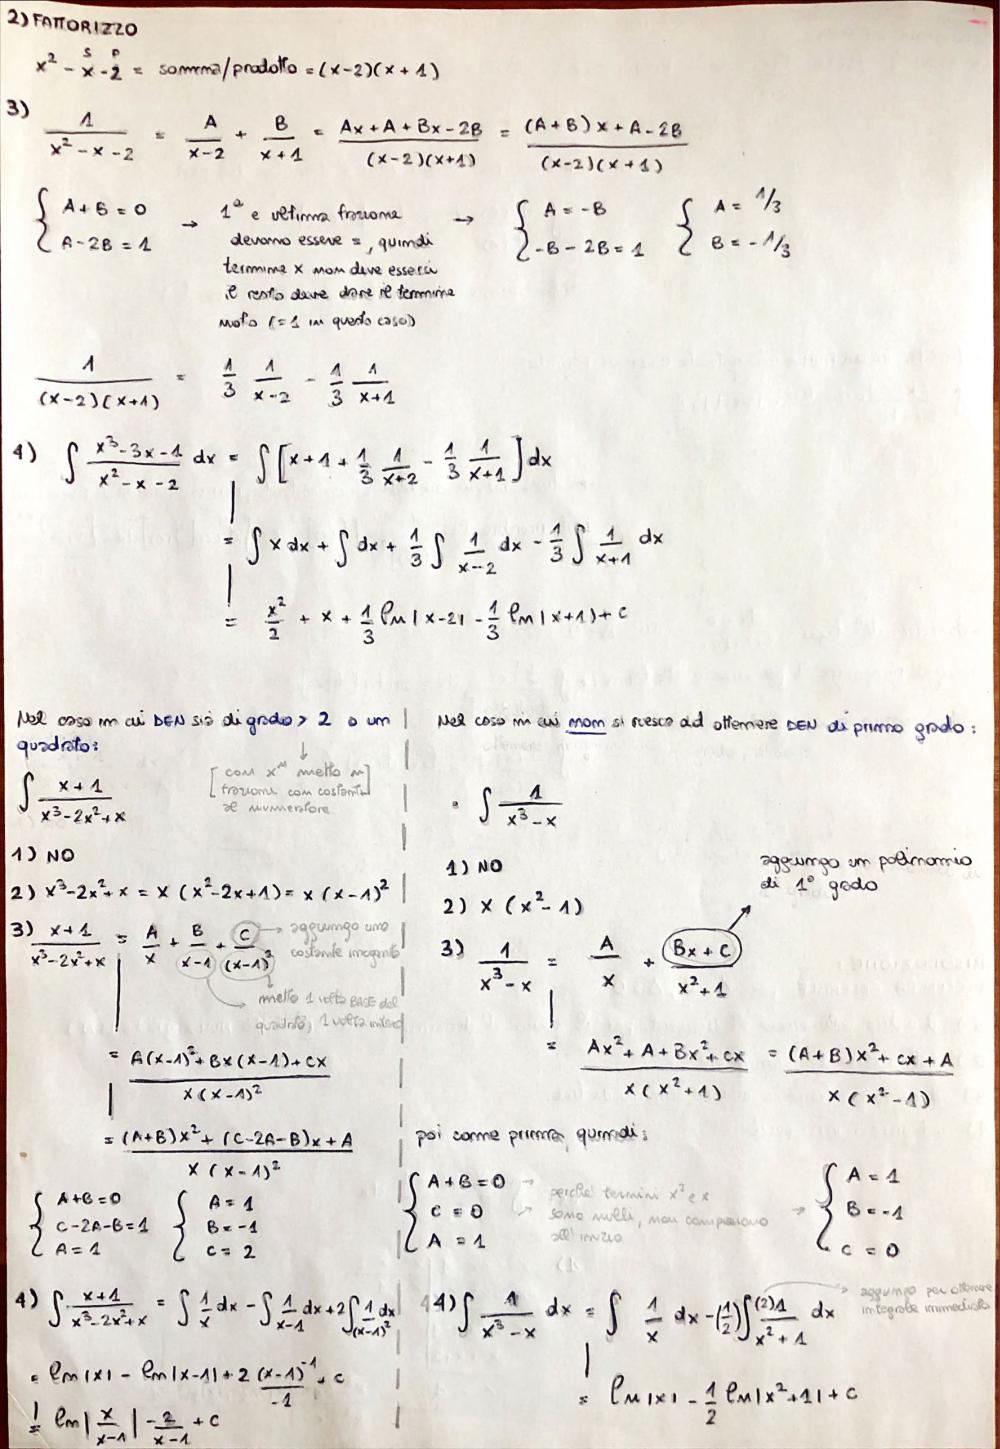 2) FATTORIZZO
S P
x² - x - 2 = somma/prodotto = (x-2)(x+1)
3) 1/(x²-x-2) = A/(x-2) + B/(x+1) = (Ax+A+Bx-2B)/((x-2)(x+1)) = ((A+B)x+A-2B)/((x-2)(x+1))
{ A+B=0 → 1ª e ultima frazione → { A=-B { A= 1/3
{ A-2B=1 devono essere =, quindi { -B-2B=1 { B=-1/3
termine x non deve esserci
il resto deve dare il termine
noto (=1 in questo caso)
1/((x-2)(x+1)) = 1/3 1/(x-2) - 1/3 1/(x+1)
4) ∫ (x³-3x-1)/(x²-x-2) dx = ∫ [x+1+1/3 1/(x+2) - 1/3 1/(x+1)] dx
= ∫ x dx + ∫ dx + 1/3 ∫ 1/(x-2) dx - 1/3 ∫ 1/(x+1) dx
= x²/2 + x + 1/3 ln|x-2| - 1/3 ln|x+1| + c
Nel caso in cui DEN sia di grado > 2 o un
quadrato:
[con xⁿ metto n
frazioni con costanti
al numeratore]
∫ (x+1)/(x³-2x²+x)
1) NO
2) x³-2x²+x = x(x²-2x+1) = x(x-1)²
3) (x+1)/(x³-2x²+x) = A/x + B/(x-1) + C/(x-1)² → aggiungo una
costante incognita
metto 1 volta BASE del
quadrato, 1 volta intero
= (A(x-1)²+Bx(x-1)+Cx)/(x(x-1)²)
= ((A+B)x²+(C-2A-B)x+A)/(x(x-1)²)
{ A+B=0 { A=1
{ C-2A-B=1 { B=-1
{ A=1 { C=2
4) ∫ (x+1)/(x³-2x²+x) = ∫ 1/x dx - ∫ 1/(x-1) dx + 2∫ 1/(x-1)² dx
= ln|x| - ln|x-1| + 2 (x-1)⁻¹/-1 + c
= ln|x/(x-1)| - 2/(x-1) + c
Nel caso in cui non si riesca ad ottenere DEN di primo grado:
• ∫ 1/(x³-x)
1) NO
aggiungo un polinomio
di 1° grado
2) x(x²-1)
3) 1/(x³-x) = A/x + (Bx+C)/(x²+1)
= (Ax²+A+Bx²+cx)/(x(x²+1)) = ((A+B)x²+cx+A)/(x(x²-1))
poi come prima, quindi:
{ A+B=0 → perché termini x² e x { A=1
{ C=0 → sono nulli, non compaiono → { B=-1
{ A=1 all'inizio { C=0
4) ∫ 1/(x³-x) dx = ∫ 1/x dx - (1/2)∫ (2)1/(x²+1) dx → aggiungo per ottenere
integrale immediato
= ln|x| - 1/2 ln|x²+1| + c